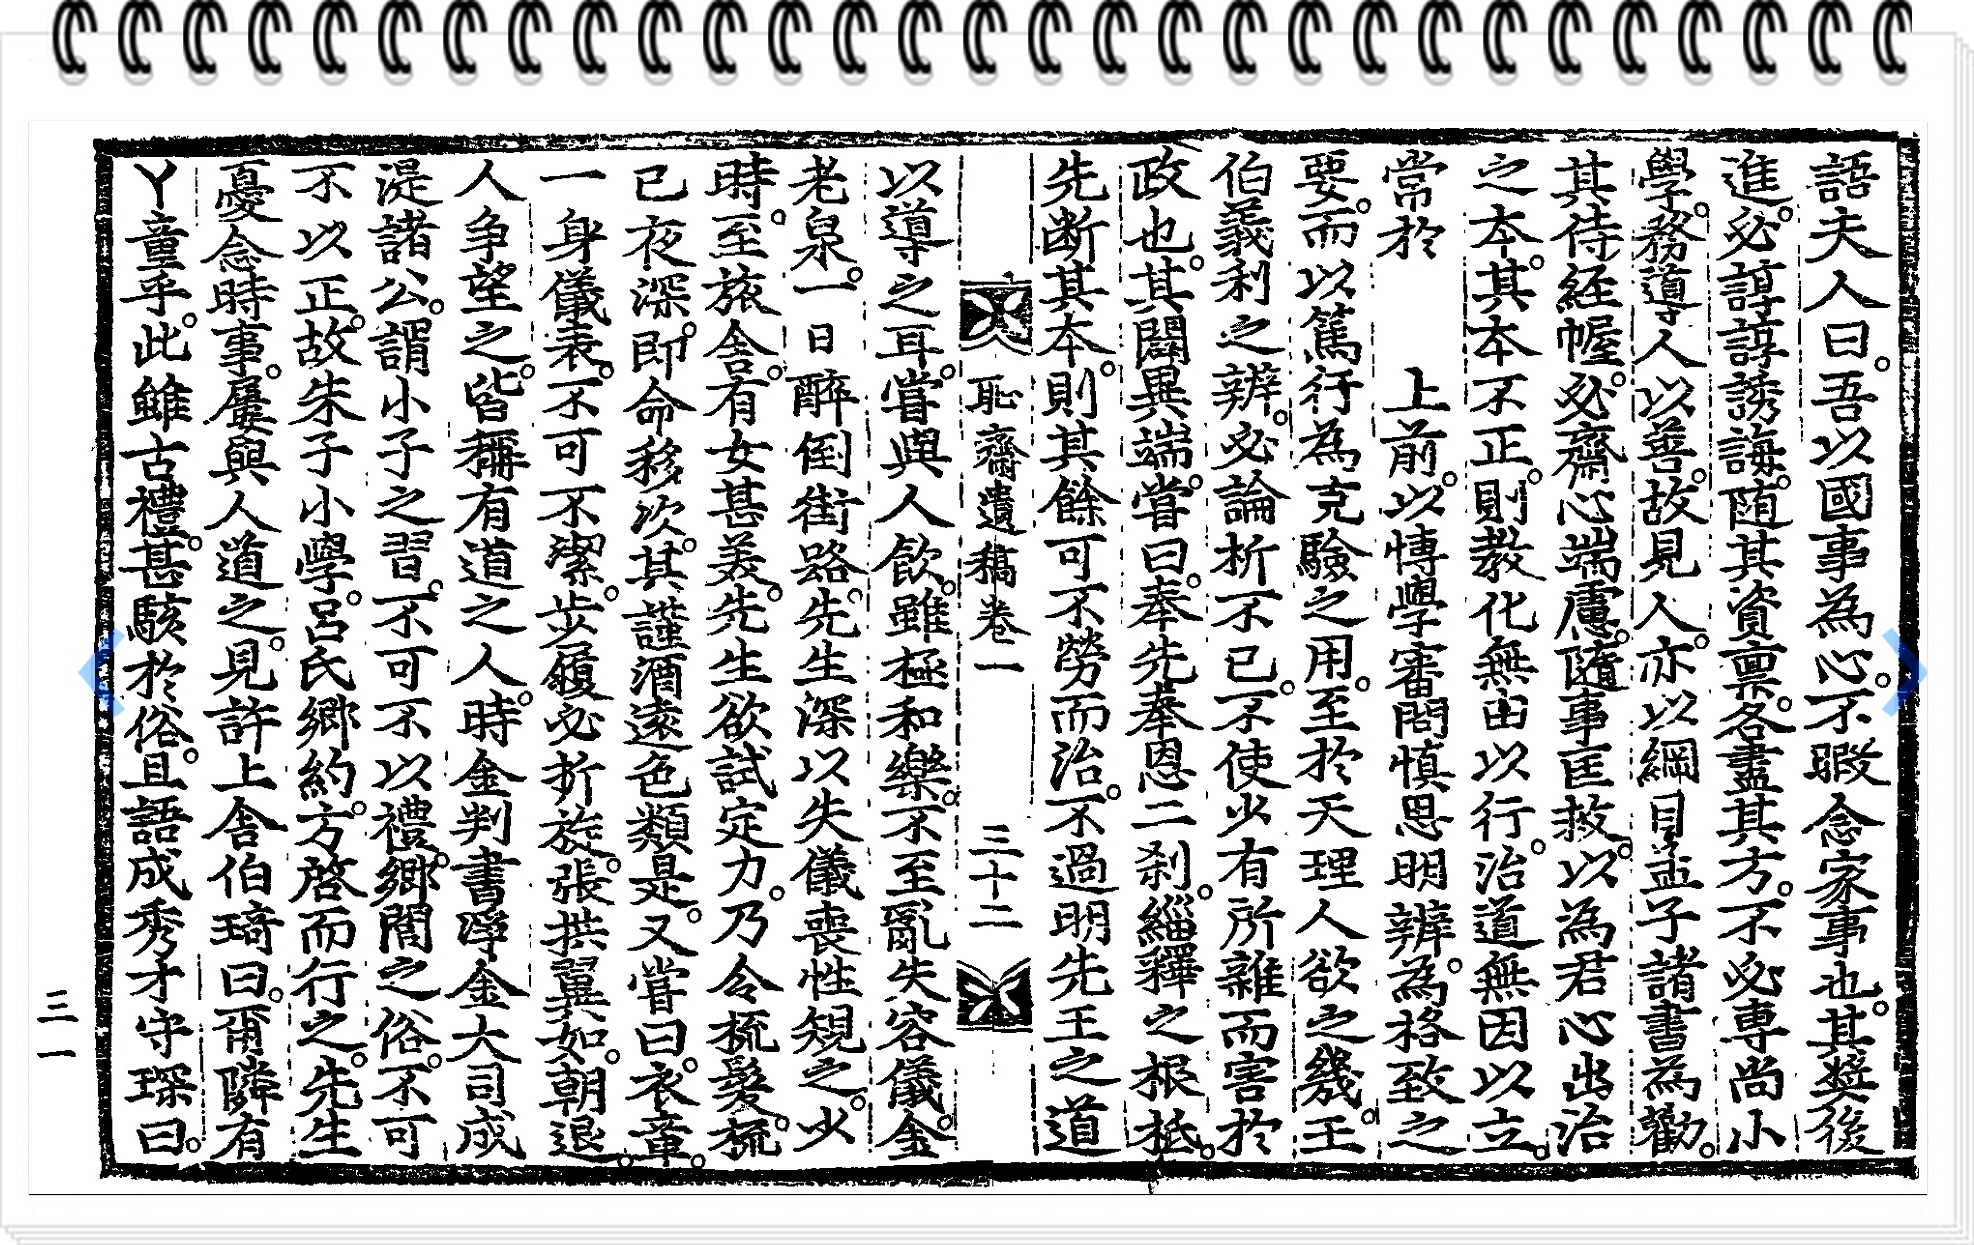 語夫人曰吾以國事為心不暇念家事也其奬後
進必諄諄誘誨随其資禀各盡其方不必專尚小
學務導人以善故見人亦以綱目孟子諸書為勸
其侍經幄必齋心端慮隨事匡救以為君心出治
之本其本不正則敎化無由以行治道無因以立
常於 上前以博學審問愼思明辨為格致之
要而以篤行為克驗之用至於天理人欲之幾王
伯義利之辨必論析不已不使少有所雜而害於
政也其闢異端嘗曰奉先奉恩二刹緇釋之根柢
先断其本則其餘可不勞而治不過明先王之道
恥齋遺稿卷一 三十二
以導之耳嘗與人飮雖極和樂不至亂失容儀金
老泉一日醉倒街路先生深以失儀喪性規之少
時至旅舍有女甚美先生欲試定力乃令梳髮梳
已夜深卽命移次其謹酒遠色類是又嘗曰衣章
一身儀表不可不潔步履必折旋張拱翼如朝退
人争望之皆稱有道之人時金判書淨金大司成
湜諸公謂小子之習不可不以禮鄕閭之俗不可
不以正故朱子小學呂氏鄕約方啓而行之先生
憂念時事屢與人道之見許上舍伯琦曰爾隣有
丫童乎此雖古禮甚駭於俗且語成秀才守琛曰
三一